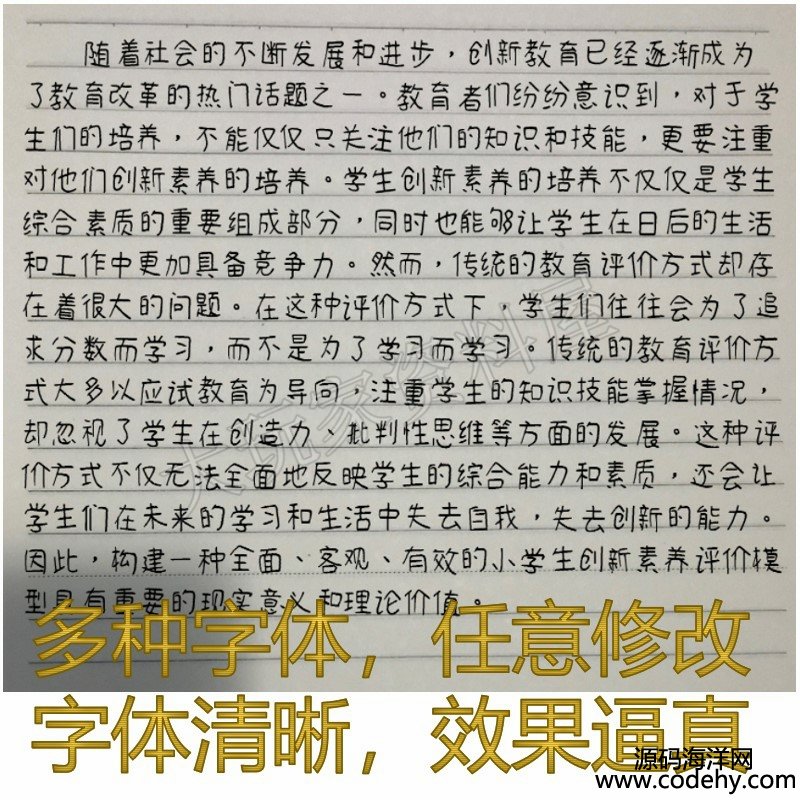 随着社会的不断发展和进步，创新教育已经逐渐成为
了教育改革的热门话题之一。教育者们纷纷意识到，对于学
生们的培养，不能仅仅只关注他们的知识和技能，更要注重
对他们创新素养的培养。学生创新素养的培养不仅仅是学生
综合素质的重要组成部分，同时也能够让学生在日后的生活
和工作中更加具备竞争力。然而，传统的教育评价方式却存
在着很大的问题。在这种评价方式下，学生们往往会为了追
求分数而学习，而不是为了学习而学习。传统的教育评价方
式大多以应试教育为导向，注重学生的知识技能掌握情况，
却忽视了学生在创造力、批判性思维等方面的发展。这种评
价方式不仅无法全面地反映学生的综合能力和素质，还会让
学生们在未来的学习和生活中失去自我，失去创新的能力。
因此，构建一种全面、客观、有效的小学生创新素养评价模
型具有重要的现实意义和理论价值。
大玩家资料屋
多种字体，任意修改
字体清晰，效果逼真
源码海洋网
www.codehy.com